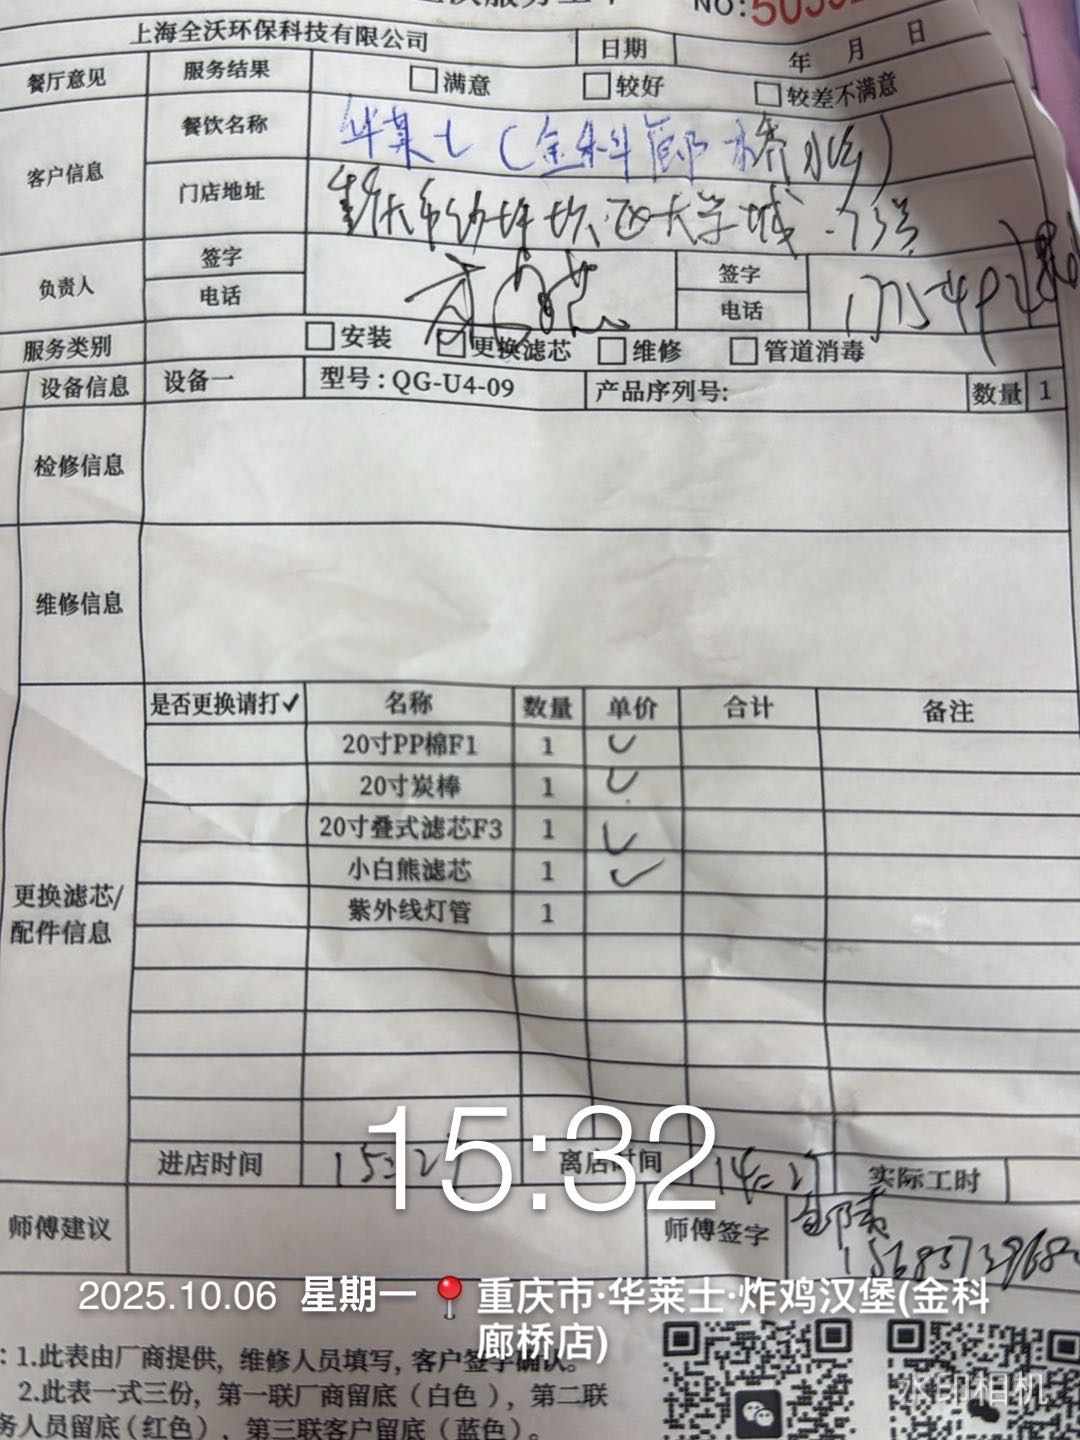 NO:
上海全沃环保科技有限公司 日期 年 月 日
餐厅意见 服务结果 满意 较好 较差不满意
客户信息 餐饮名称 华莱士(金科廊桥水乡)
门店地址 重庆市沙坪坝区大学城
负责人 签字 签字
电话 电话
服务类别 安装 更换滤芯 维修 管道消毒
设备信息 设备一 型号:QG-U4-09 产品序列号: 数量 1
检修信息
维修信息
更换滤芯/
配件信息
是否更换请打✓ 名称 数量 单价 合计 备注
20寸PP棉F1 1 ✓
20寸炭棒 1 ✓
20寸叠式滤芯F3 1 ✓
小白熊滤芯 1 ✓
紫外线灯管 1
15:32
进店时间 离店时间 实际工时
师傅建议 师傅签字
2025.10.06 星期一 重庆市·华莱士·炸鸡汉堡(金科
廊桥店)
:1.此表由厂商提供,维修人员填写,客户签字确认。
2.此表一式三份,第一联厂商留底(白色),第二联
务人员留底(红色),第三联客户留底(蓝色)。
水印相机